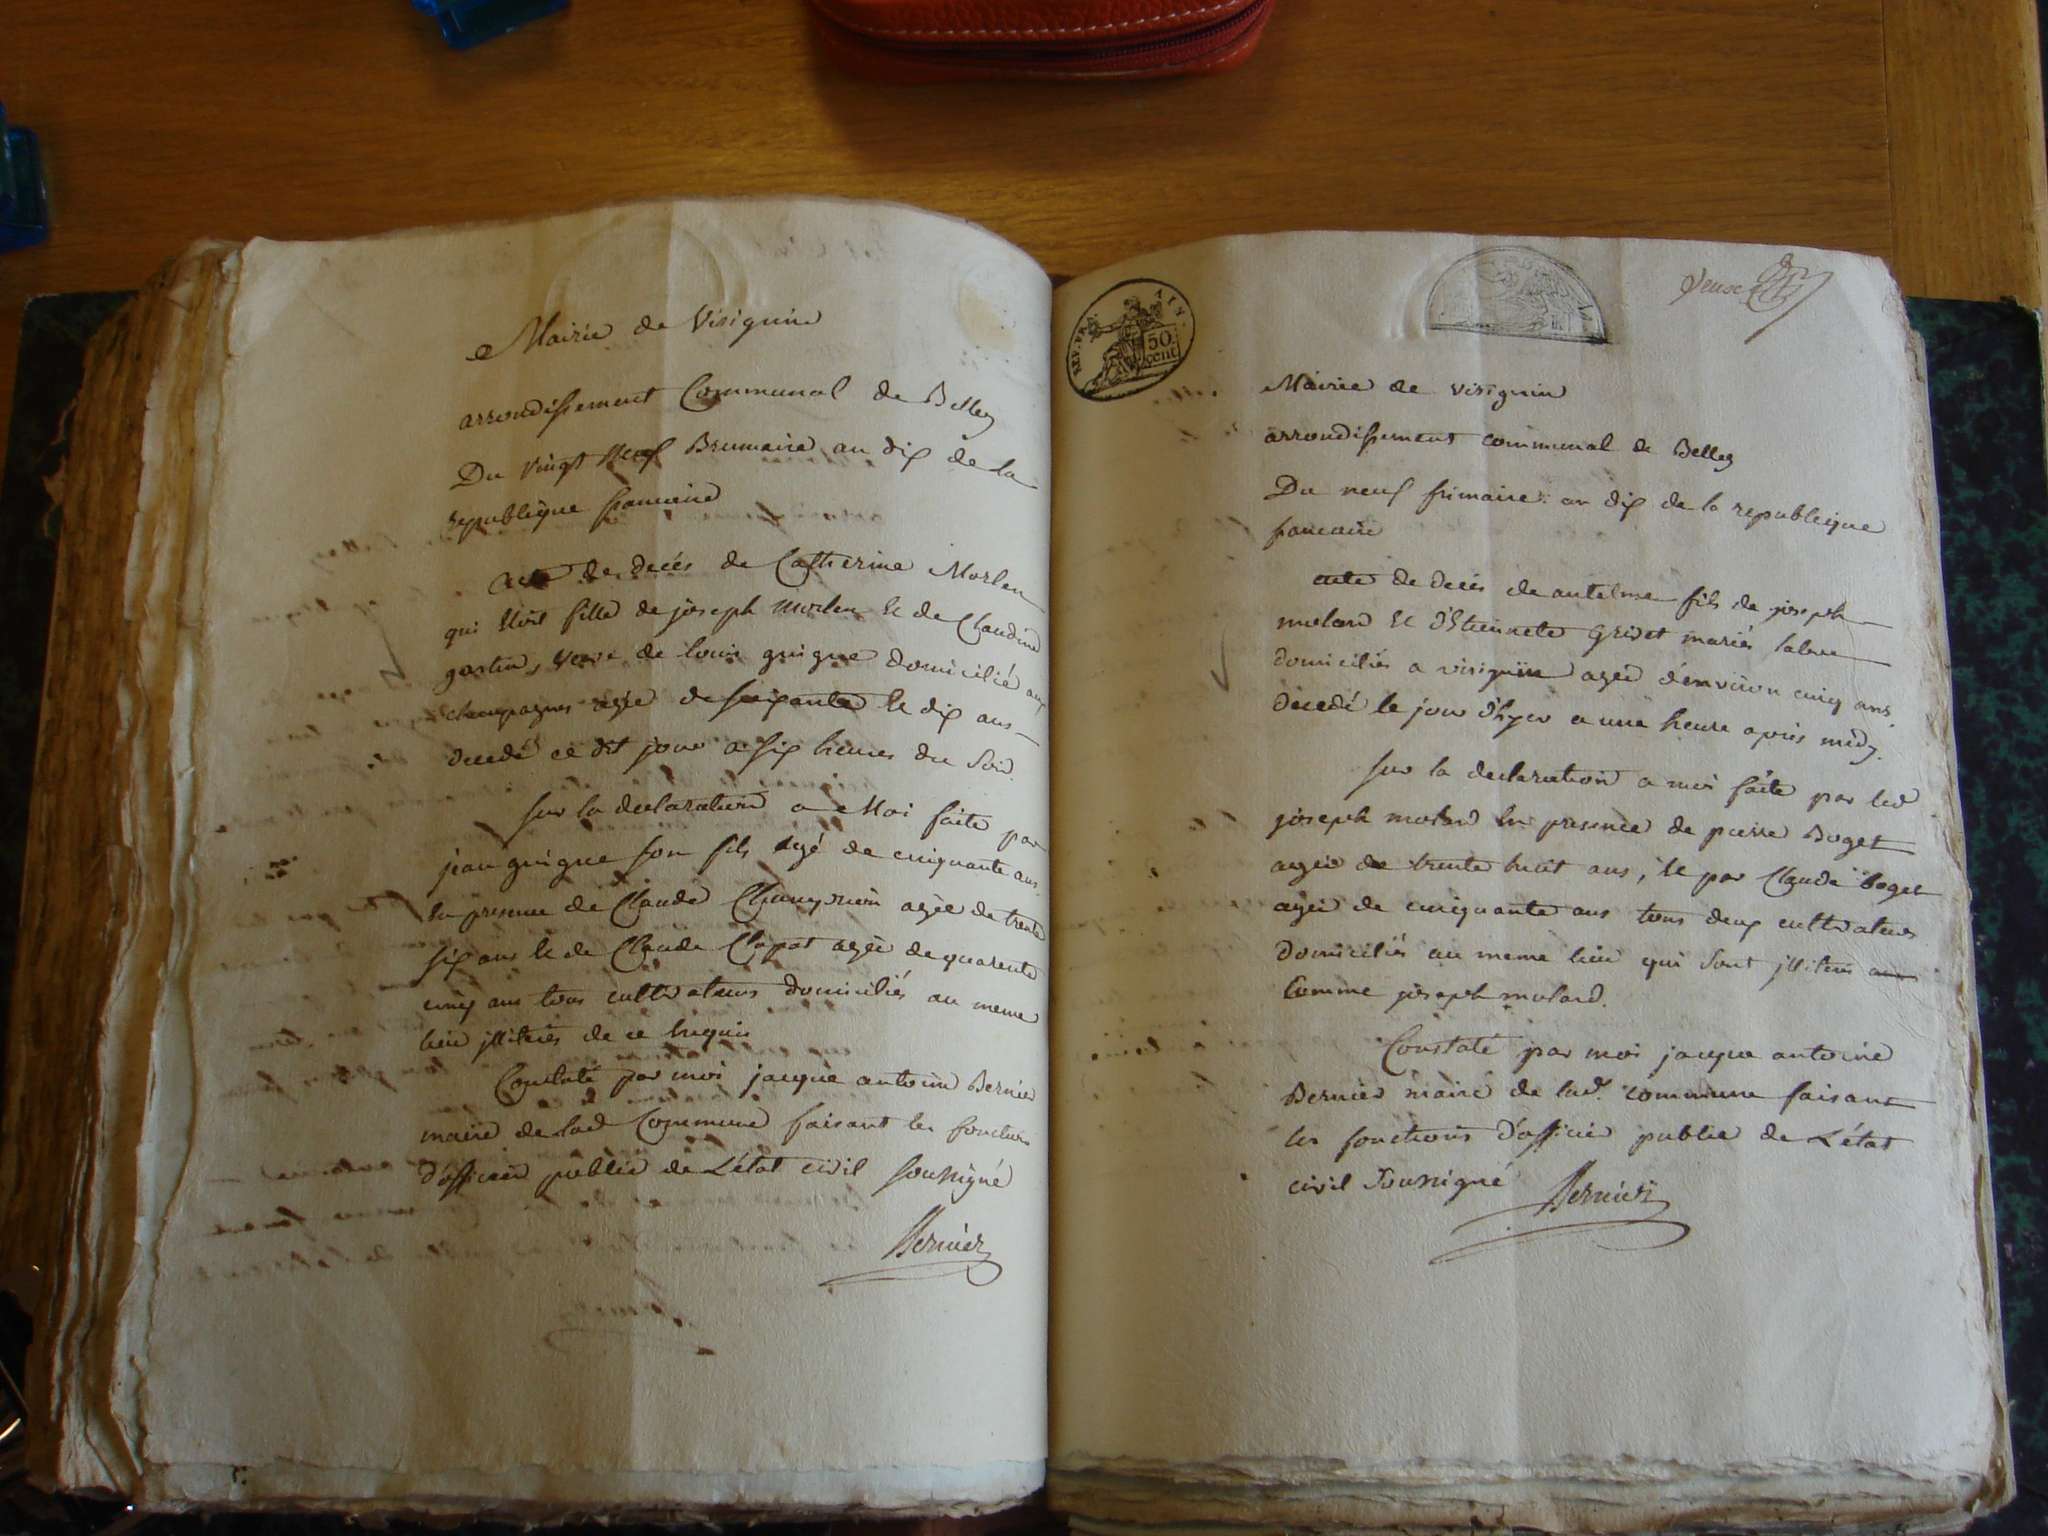 Mairie de Visignin
arrondissement Communal de Belley
Du vingt neuf Brumaire an dix de la
republique francaise
acte de decés de Catherine Morlen
qui etoit fille de joseph morlen et de Claudine
gastin, veuve de louis guigue domicilié aux
champagnes agée de soixante et dix ans
decedé ce dit jour a six heures du soir.
sur la declaration a moi faite par
jean guigue son fils agé de cinquante ans
en presence de Claude agée de trente
six ans et de Claude Clapot agée de quarente
cinq ans tous cultivateurs domiciliés au meme
lieu illiterés de ce requis
Constaté par moi jacque antoine Bernier
maire de lad Commune faisant les fonctions
d'officier public de L'état civil soussigné
Bernier
REP. FRA. AIN.
50 cent
Mairie de visignin
arrondissement communal de Belley
Du neuf frimaire an dix de la republique
francaise
acte de decés de antelme fils de joseph
molard et d'Etiennete Gridet mariés labeur
domiciliés a visignin agée d'environ cinq ans
decedé le jour d'hyer a une heure après midy.
sur la declaration a moi faite par led
joseph molard en presence de pierre Boget
agée de trente huit ans, et par Claude boget
agée de cinquante ans tous deux cultivateurs
domiciliés au meme lieu qui sont illiterés
Comme joseph molard.
Constaté par moi jacque antoine
Bernier maire de lad. commune faisant
les fonctions d'officier public de L'état
civil soussigné Bernier